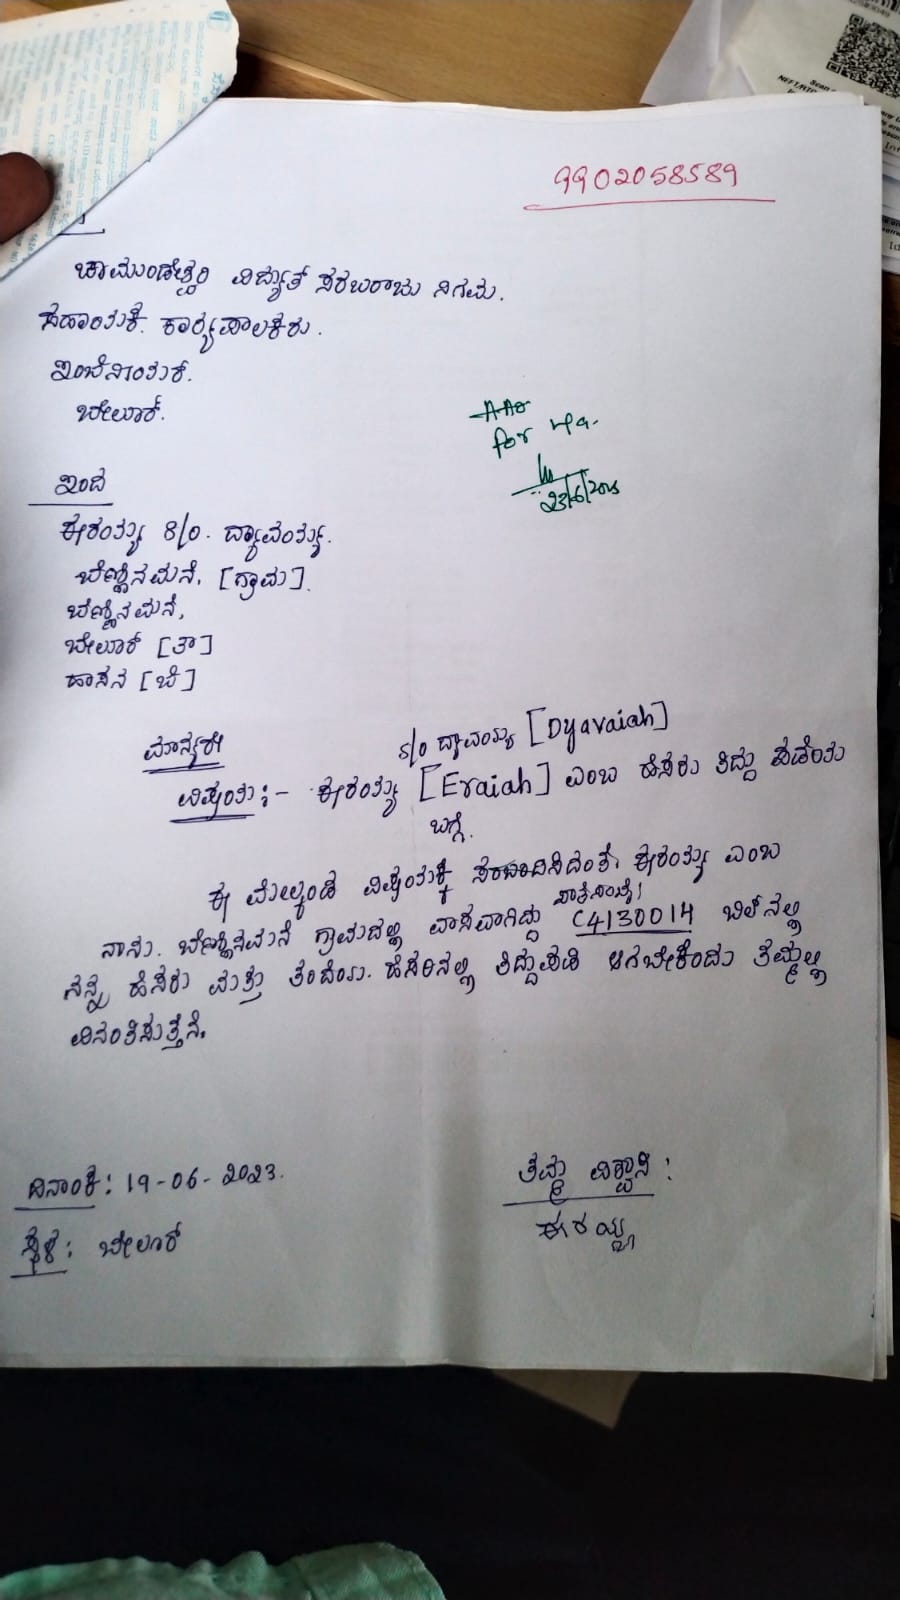 9902058589
ಚಾಮುಂಡೇಶ್ವರಿ ವಿದ್ಯುತ್ ಸರಬರಾಜು ನಿಗಮ.
ಸಹಾಯಕ. ಕಾರ್ಯಪಾಲಕರು.
ಇಂಜಿನಿಯರ್.
ಬೇಲೂರ್.
AAO
for na.
23/6/2023
ಇಂದ
ಈರಯ್ಯ S/o. ದ್ಯಾವಯ್ಯ.
ಬೆಣ್ಣಿನಮನೆ, [ಗ್ರಾಮ].
ಬೆಣ್ಣಿನಮನೆ,
ಬೇಲೂರ್ [ತಾ]
ಹಾಸನ [ಜಿ]
ಮಾನ್ಯರೇ
S/o ದ್ಯಾವಯ್ಯ [Dyavaiah]
ವಿಷಯ:- ಈರಯ್ಯ [Eraiah] ಎಂಬ ಹೆಸರು ತಿದ್ದು ಪಡೆಯ
ಬಗ್ಗೆ.
ಈ ಮೇಲ್ಕಂಡ ವಿಷಯಕ್ಕೆ ಸಂಬಂದಿಸಿದಂತೆ, ಈರಯ್ಯ ಎಂಬ
ನಾನು. ಬೆಣ್ಣಿನಮನೆ ಗ್ರಾಮದಲ್ಲಿ ವಾಸವಾಗಿದ್ದು ಖಾತೆಸಂಖ್ಯೆ/ C4130014 ಬಿಲ್‌ನಲ್ಲಿ
ನನ್ನ ಹೆಸರು ಮತ್ತು ತಂದೆಯ. ಹೆಸರಿನಲ್ಲಿ ತಿದ್ದುಪಡಿ ಆಗಬೇಕೆಂದು ತಮ್ಮಲ್ಲಿ
ವಿನಂತಿಸುತ್ತೇನೆ.
ದಿನಾಂಕ: 19-06-2023.
ತಮ್ಮ ವಿಶ್ವಾಸಿ:
ಸ್ಥಳ: ಬೇಲೂರ್
ಈರಯ್ಯ